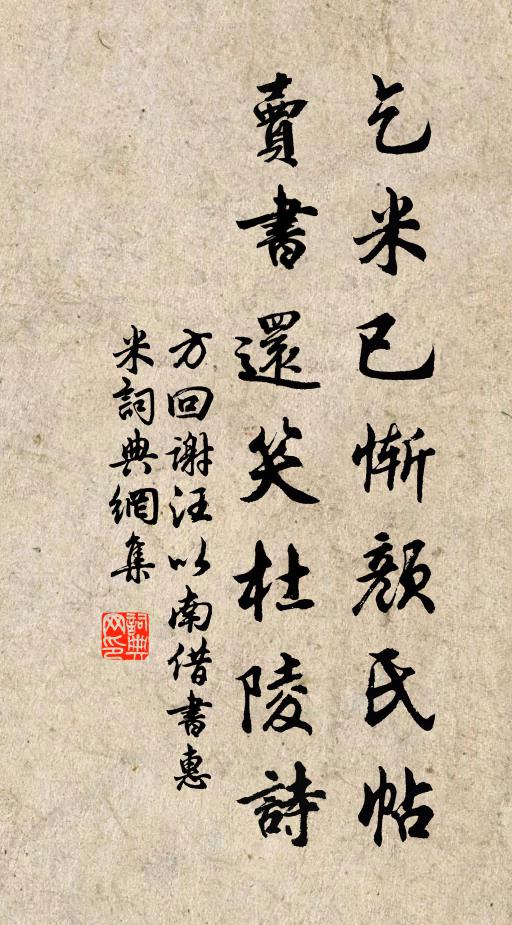 乞米已慚顏氏帖
賣書還笑杜陵詩
方回謝汪以南借書惠
米詞典網集
詞典网印